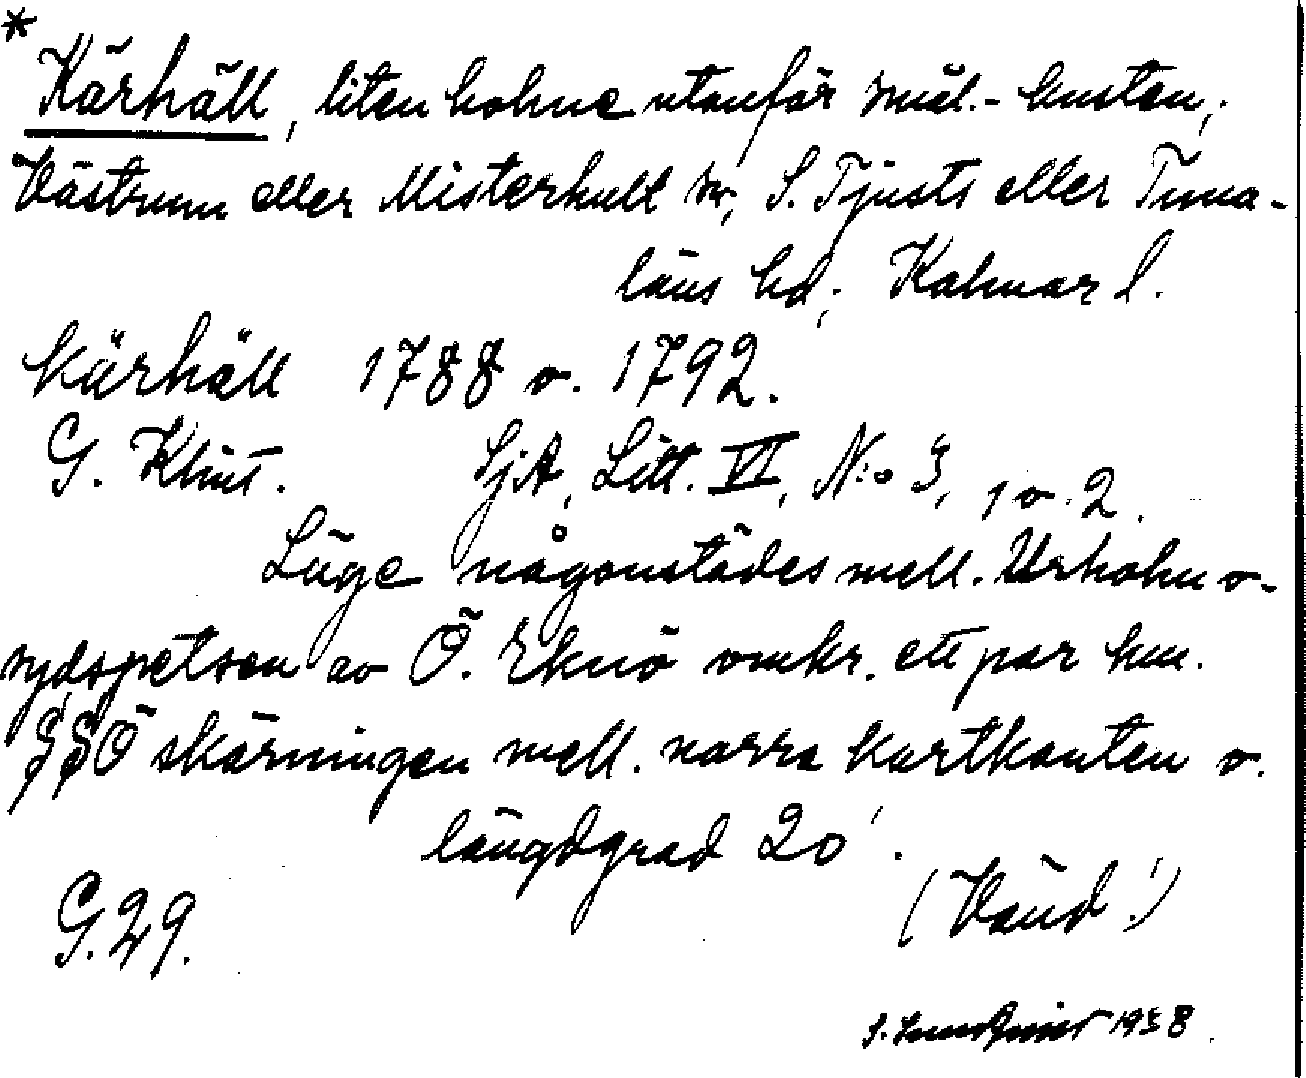 *
Kärhäll, liten holme utanför smål.-kusten,
Västrum eller Misterhult sn, S. Tjusts eller Tuna-
läns hd, Kalmar l.
Kärhäll 1788 o. 1792.
G. Klint. SjA, Litt. VI, N:o 3, 1 o. 2.
Läge någonstädes mell. Urholm o.
sydspetsen av Ö. Eknö omkr. ett par km.
SSÖ skärningen mell. norra kartkanten o.
längdgrad 20'.
(Vänd!)
G. 29.
S. 1938.